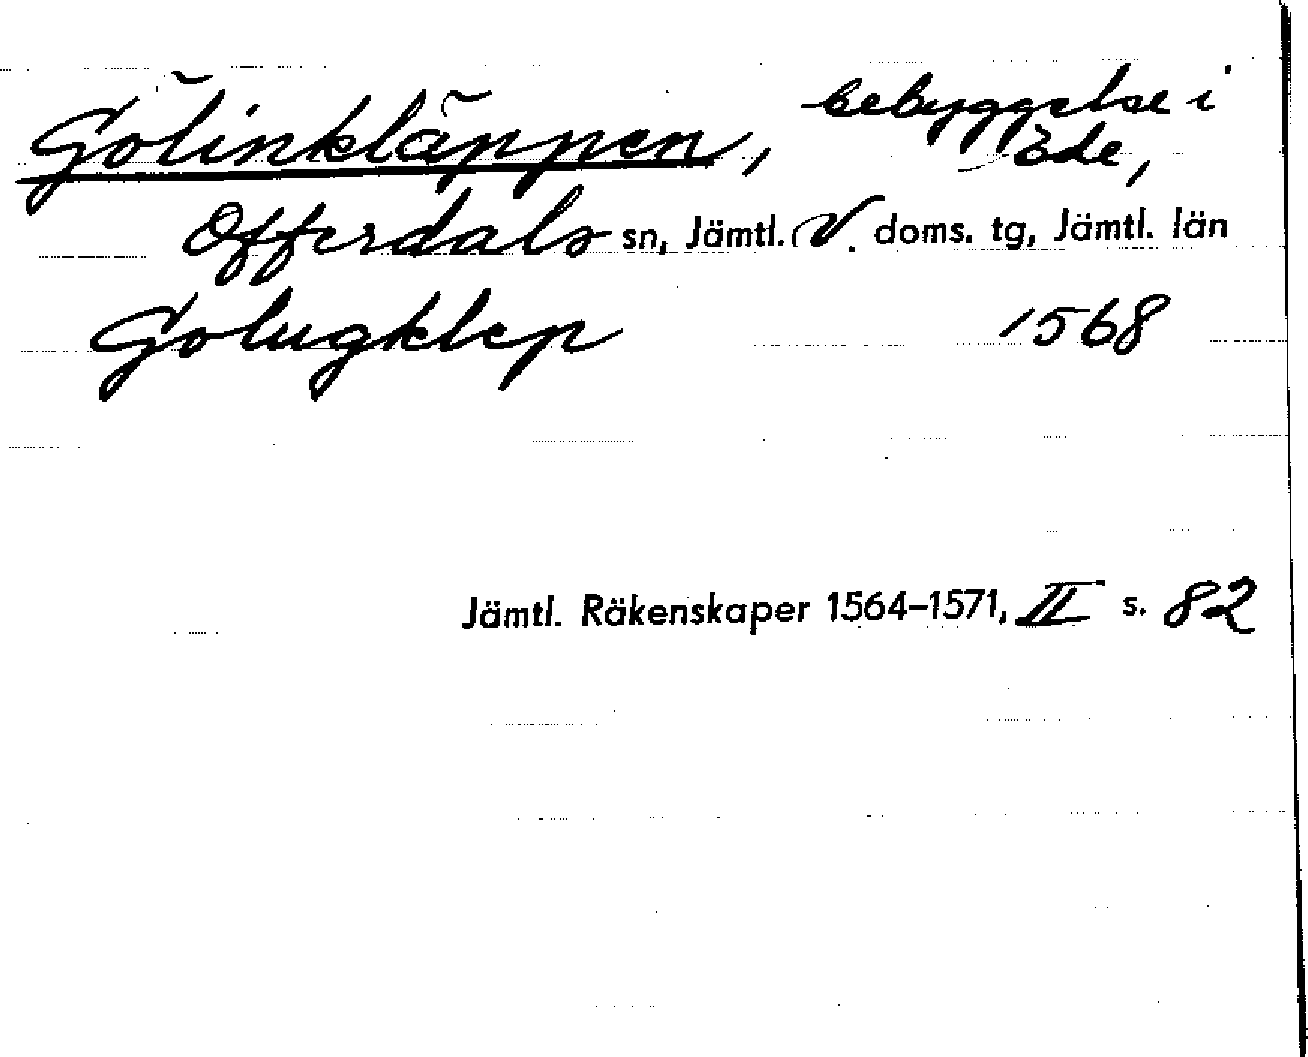 Gölinkläppen, bebyggelse i
Ede,
Offerdals sn, Jämtl. V. doms. tg, Jämtl. län
Golugklep 1568
Jämtl. Räkenskaper 1564–1571, II s. 82